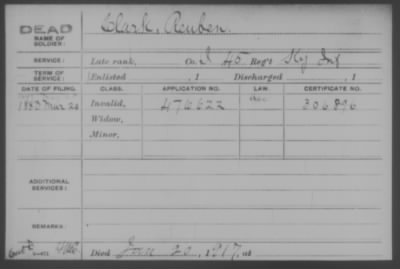 DEAD
NAME OF SOLDIER: Clark, Reuben.
SERVICE: Late rank, Co. I 45 Reg't Ky Inf
TERM OF SERVICE: Enlisted , 1 Discharged , 1
DATE OF FILING. CLASS. APPLICATION NO. LAW. CERTIFICATE NO.
1883 Mar 20 Invalid, 476622 306896
Widow,
Minor,
ADDITIONAL SERVICES:
REMARKS:
Died 20, 1917, at